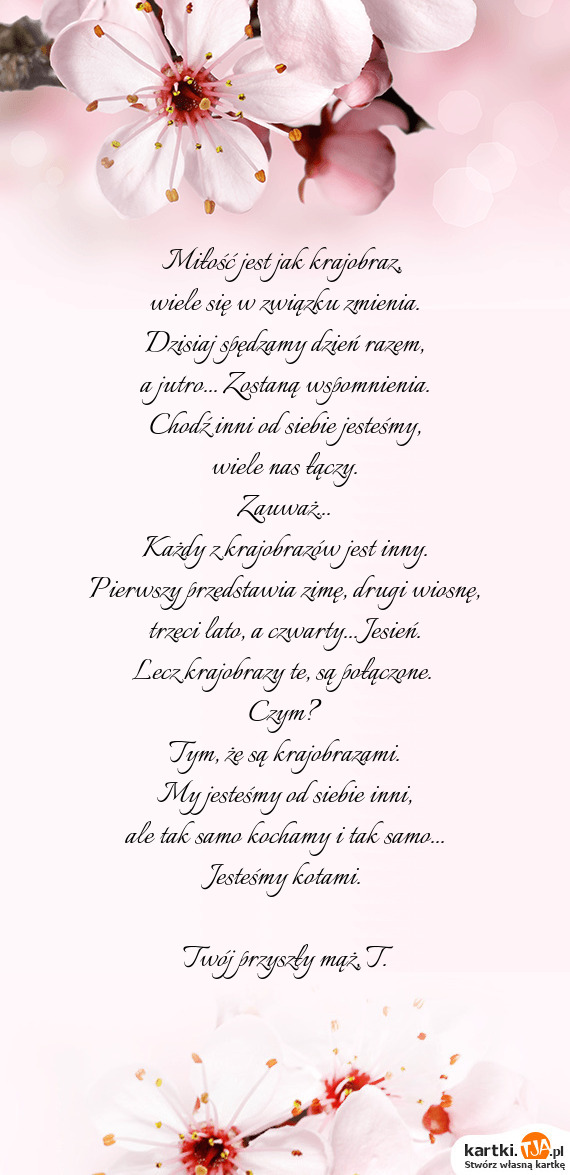 Miłość jest jak krajobraz,
wiele się w związku zmienia.
Dzisiaj spędzamy dzień razem,
a jutro... Zostaną wspomnienia.
Chodź inni od siebie jesteśmy,
wiele nas łączy.
Zauważ...
Każdy z krajobrazów jest inny.
Pierwszy przedstawia zimę, drugi wiosnę,
trzeci lato, a czwarty... Jesień.
Lecz krajobrazy te, są połączone.
Czym?
Tym, że są krajobrazami.
My jesteśmy od siebie inni,
ale tak samo kochamy i tak samo...
Jesteśmy kotami.
Twój przyszły mąż, T.
kartki.TJA.pl
Stwórz własną kartkę